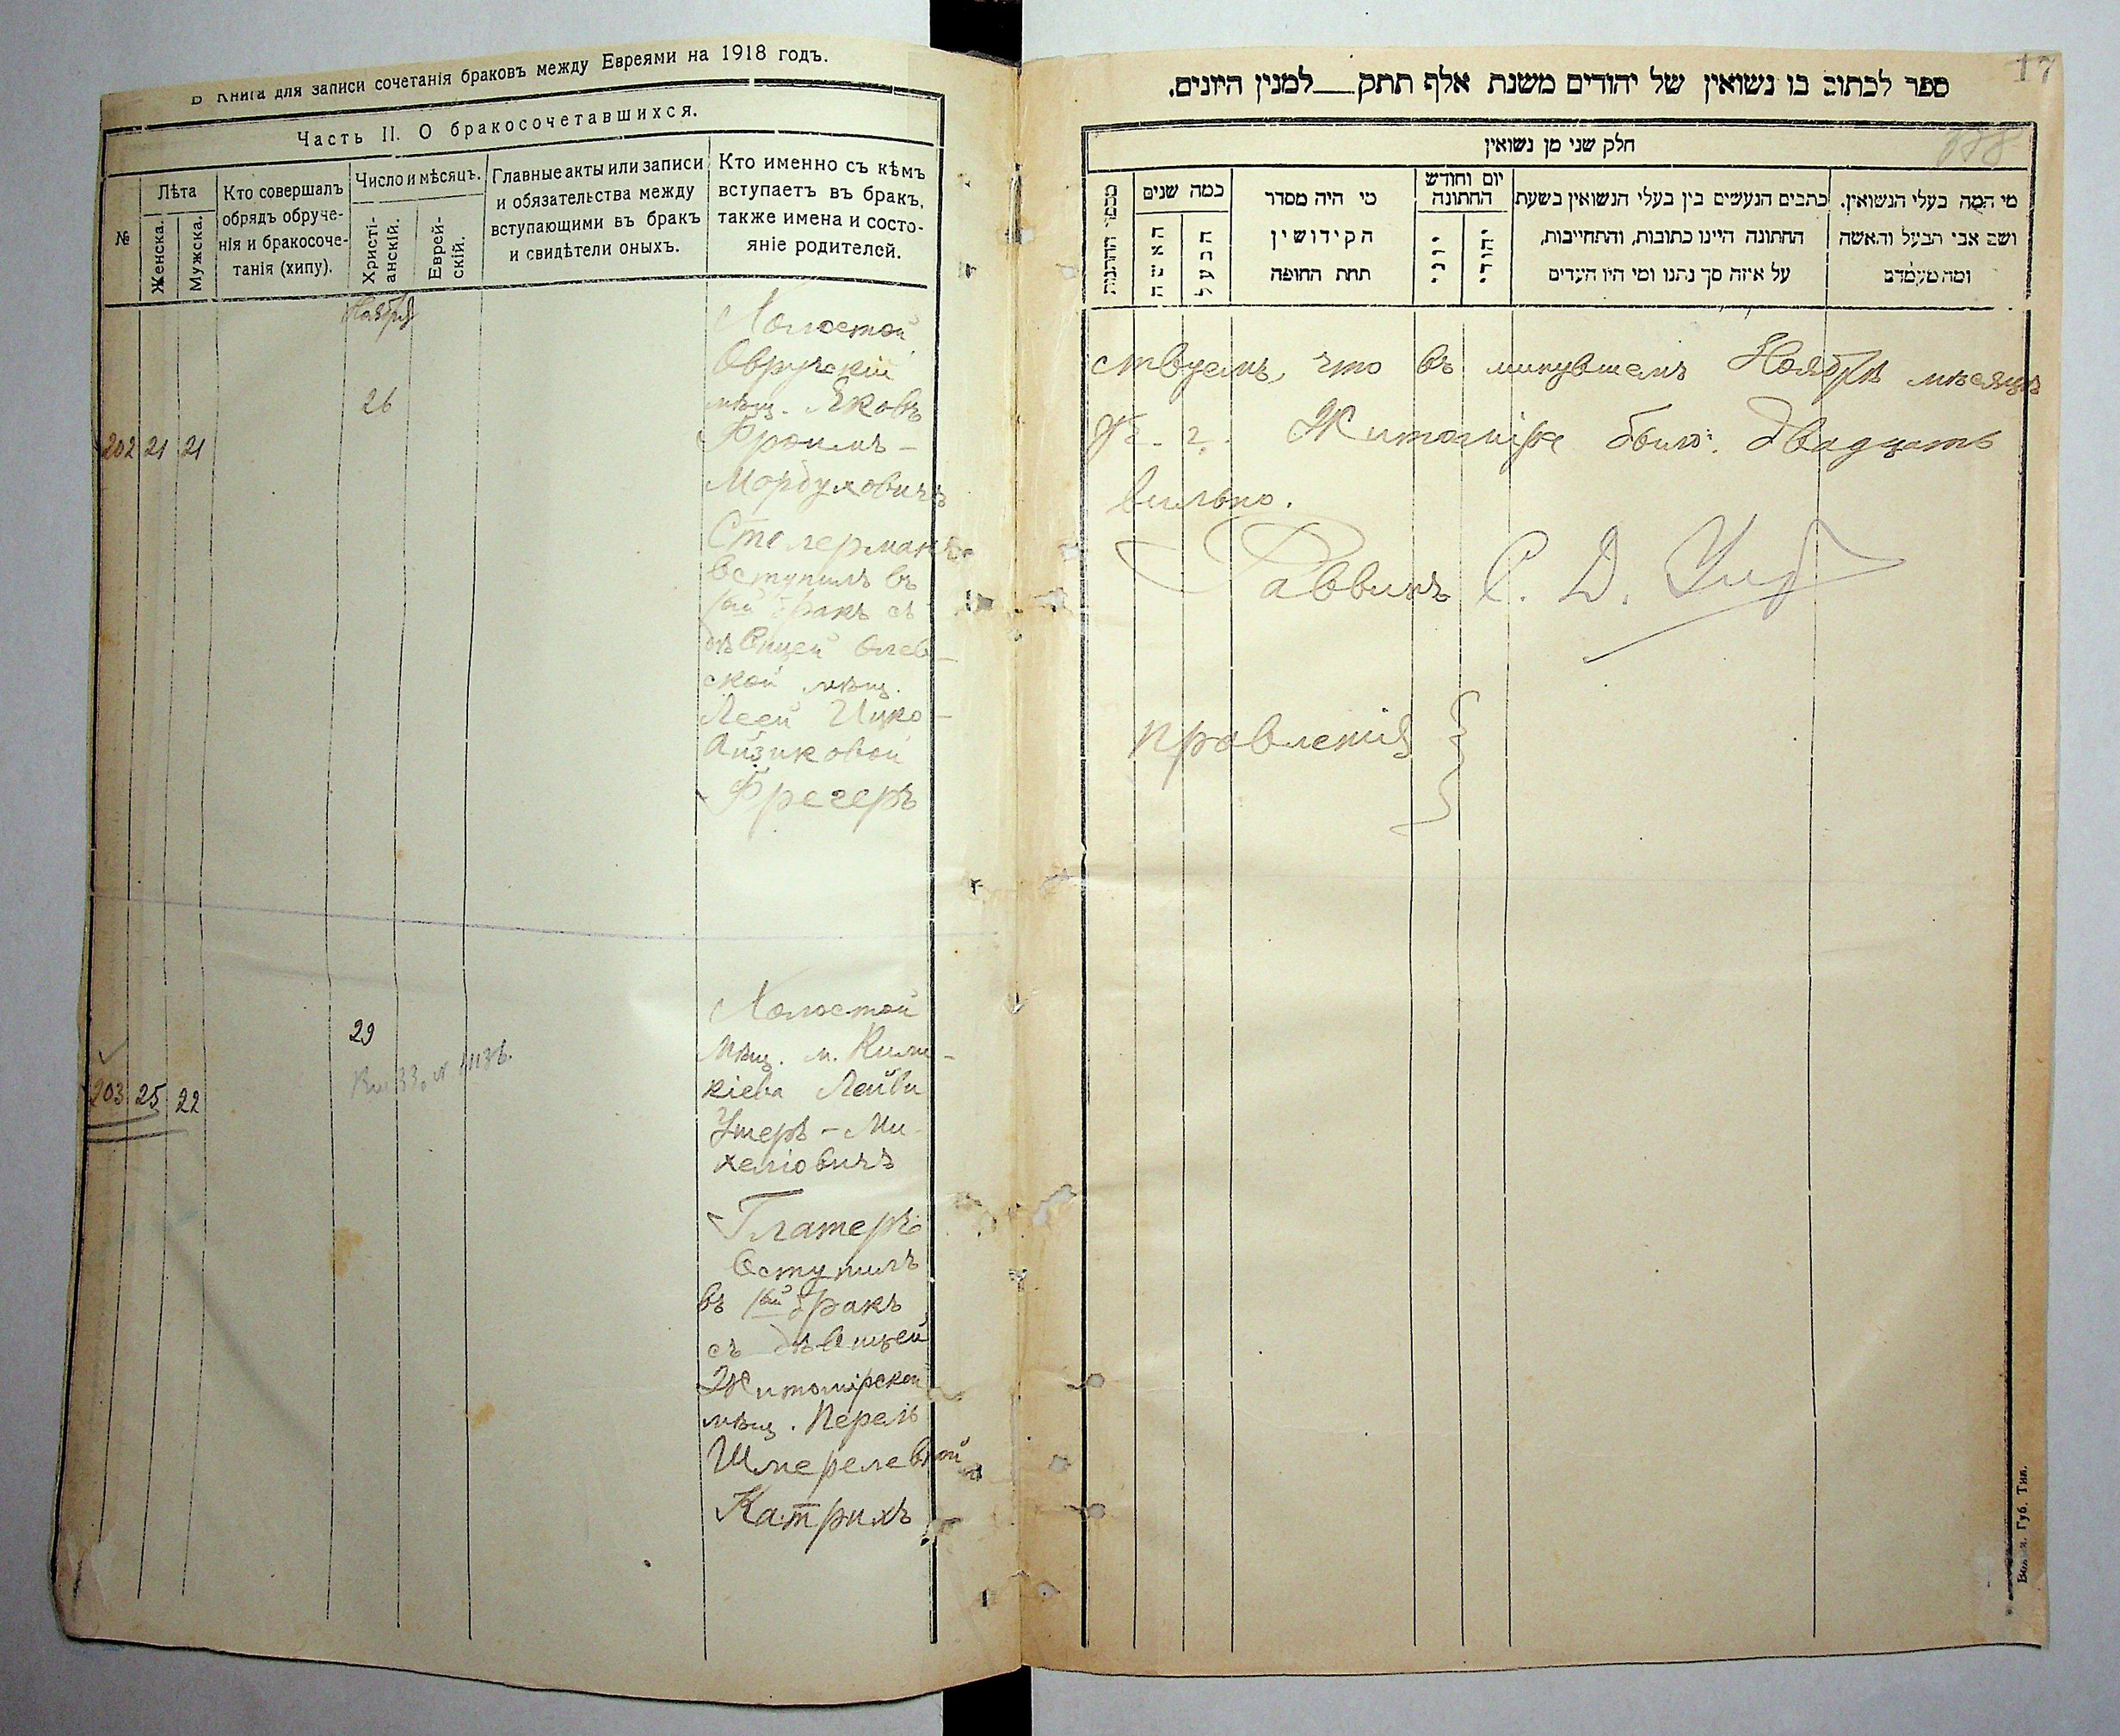 В Книга для записи сочетанія браковъ между Евреями на 1918 годъ.
Часть II. О бракосочетавшихся.
№
Лѣта
Женска.
Мужска.
Кто совершалъ
обрядъ обруче-
нія и бракосоче-
танія (хипу).
Число и мѣсяцъ.
Христі-
анскій.
Еврей-
скій.
Главные акты или записи
и обязательства между
вступающими въ бракъ
и свидѣтели оныхъ.
Кто именно съ кѣмъ
вступаетъ въ бракъ,
также имена и состо-
яніе родителей.
Ноября
26
202 21 21
Холостой
Овручскій
мѣщ. Яковъ
Фроимъ-
Мордуховичъ
Столерманъ
вступилъ въ
1ый бракъ съ
дѣвицей Олев-
ской мѣщ.
Леей Ицко-
Айзиковой
Фрегеръ
29
203 25 22
Холостой
мѣщ. м. Кили-
кіева Лейви
Ушеръ-Ми-
хеліовичъ
Глатеръ
вступилъ
въ 1ый бракъ
съ дѣвицей
Житомірской
мѣщ. Перель
Шмерелевной
Катрихъ
17
ספר לכתוב בו נשואין של יהודים משנת אלף תתק__למנין היונים.
חלק שני מן נשואין
מי המה בעלי הנשואין.
ושם אבי הבעל והאשה
ומה מעמדם
כתבים הנעשים בין בעלי הנשואין בשעת
החתונה היינו כתובות, והתחייבות,
על איזה סך נתנו ומי היו העדים
יום וחודש
החתונה
יהודי
יוני
מי היה מסדר
הקידושין
תחת החופה
כמה שנים
הבעל
האשה
ствуемъ, что въ минувшемъ Ноябрѣ мѣсяцѣ
г. Житомірѣ было: двадцать
вильно.
Раввинъ С. Д.
правленія
Губ. Тип.